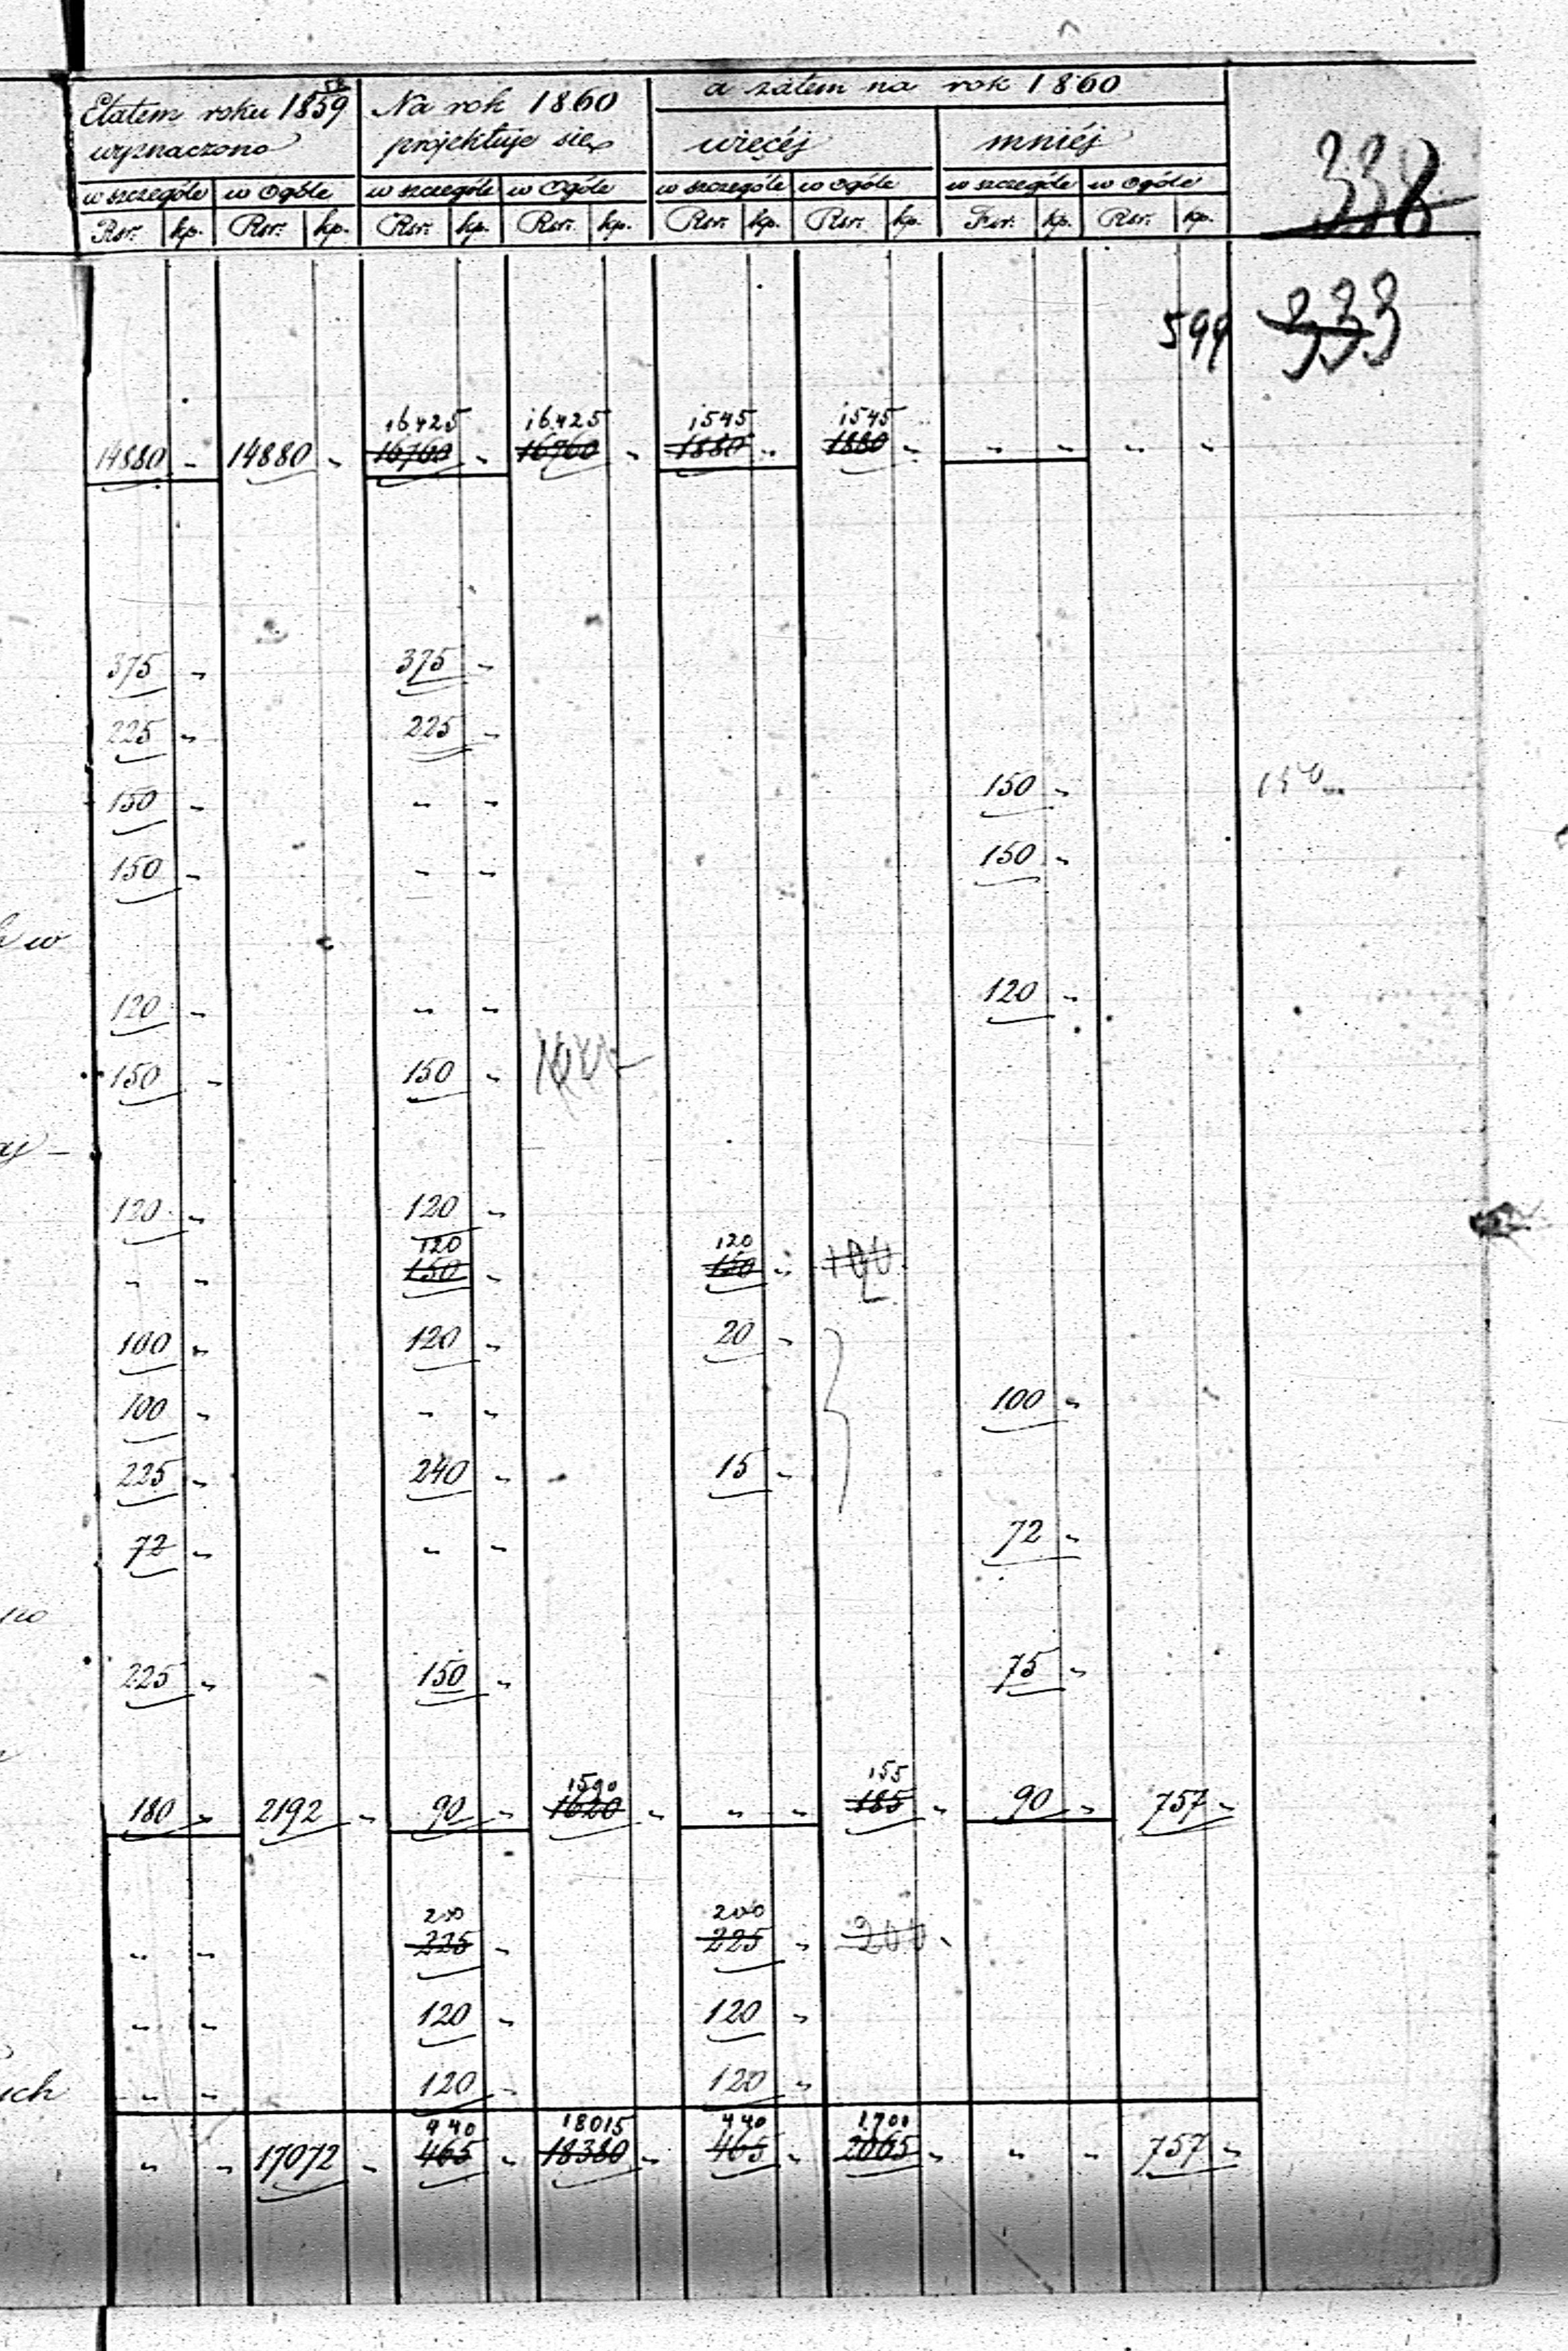 Etatem roku 1859 Na rok 1860 a zatem na rok 1860
wyznaczono projektuje się więcéj mniéj
338
w szczególe w Ogóle w szczególe w Ogóle w szczególe w ogóle w szczególe w ogóle
Rsr. kp. Rsr. kp. Rsr. kp. Rsr. kp. Rsr. kp. Rsr. kp. Rsr. kp. Rsr. kp.
599 333
16425 16425 1545 1545
14880 " 14880 " 16760 " 16760 " 1880 " 1880 " " " " "
375 " 375 "
225 " 225 "
150 " " " 150 " 150
150 " " " 150 "
w
120 " " " 120 "
150 " 150 "
120 " 120 "
120 120
" " 150 " 150 "
100 " 120 " 20 "
100 " " " 100 "
225 " 240 " 15 "
72 " " " 72 "
225 " 150 " 75 "
1590 155
180 " 2192 " 90 " 1620 " " " 185 " 90 " 757 "
200 200
" " 225 " 225 " 200 "
" " 120 " 120 "
ich " " 120 " 120 "
440 18015 440 1700
" " 17072 " 465 " 18380 " 465 " 2065 " " " 757 "